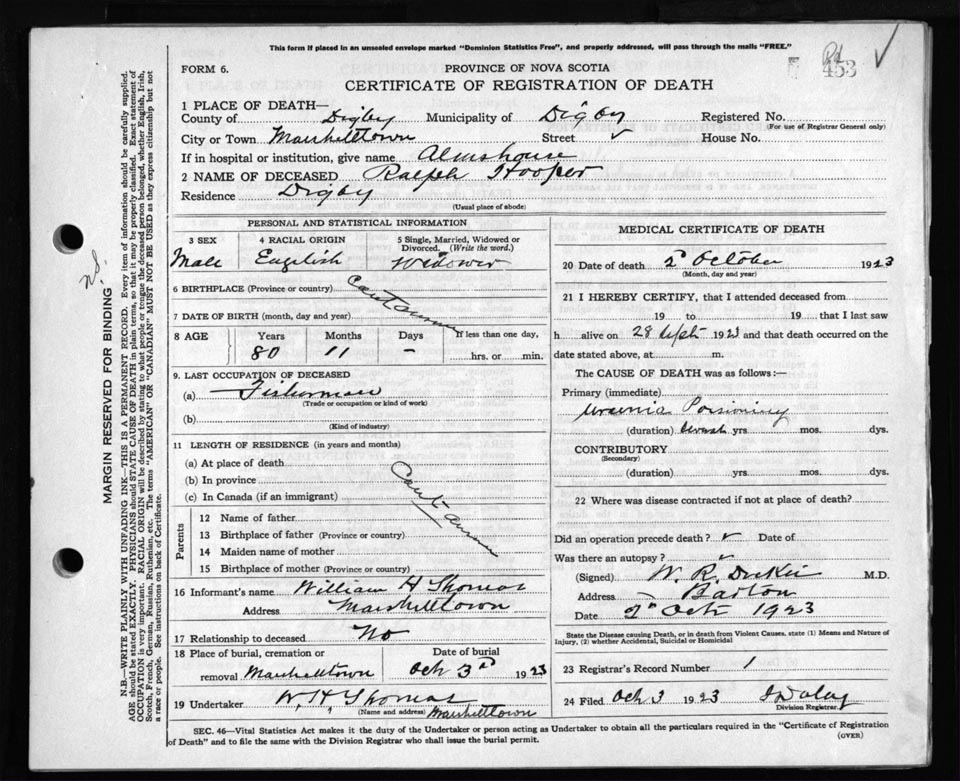 This form if placed in an unsealed envelope marked "Dominion Statistics Free", and properly addressed, will pass through the mails "FREE."
453
FORM 6.
PROVINCE OF NOVA SCOTIA
CERTIFICATE OF REGISTRATION OF DEATH
1 PLACE OF DEATH—
County of Digby Municipality of Digby Registered No.
(For use of Registrar General only)
City or Town Marshalltown Street House No.
If in hospital or institution, give name Almshouse
2 NAME OF DECEASED Ralph Hooper
Residence Digby
(Usual place of abode)
PERSONAL AND STATISTICAL INFORMATION
3 SEX 4 RACIAL ORIGIN 5 Single, Married, Widowed or Divorced. (Write the word.)
Male English Widower
6 BIRTHPLACE (Province or country)
Cant answer
7 DATE OF BIRTH (month, day and year)
8 AGE Years Months Days If less than one day,
80 11 - hrs. or min.
9. LAST OCCUPATION OF DECEASED
(a) Fisherman
(Trade or occupation or kind of work)
(b)
(Kind of industry)
11 LENGTH OF RESIDENCE (in years and months)
(a) At place of death
(b) In province
(c) In Canada (if an immigrant)
Cant answer
Parents
12 Name of father
13 Birthplace of father (Province or country)
14 Maiden name of mother
15 Birthplace of mother (Province or country)
16 Informant's name William H Thomas
Address Marshalltown
17 Relationship to deceased No
18 Place of burial, cremation or removal Marshalltown
Date of burial Oct 3rd 1923
19 Undertaker W. H. Thomas
(Name and address) Marshalltown
MEDICAL CERTIFICATE OF DEATH
20 Date of death 2 October 1923
(Month, day and year)
21 I HEREBY CERTIFY, that I attended deceased from
19 to 19 that I last saw
h alive on 28 Sept 1923 and that death occurred on the
date stated above, at m.
The CAUSE OF DEATH was as follows:—
Primary (immediate)
Uraemia Poisoning
(duration) yrs. mos. dys.
CONTRIBUTORY
(Secondary)
(duration) yrs. mos. dys.
22 Where was disease contracted if not at place of death?
Did an operation precede death? Date of
Was there an autopsy?
(Signed) W. R. Dickie M.D.
Address Barton
Date 2 Oct 1923
State the Disease causing Death, or in death from Violent Causes, state (1) Means and Nature of
Injury, (2) whether Accidental, Suicidal or Homicidal
23 Registrar's Record Number 1
24 Filed Oct 3 1923
Division Registrar
SEC. 46—Vital Statistics Act makes it the duty of the Undertaker or person acting as Undertaker to obtain all the particulars required in the "Certificate of Registration
of Death" and to file the same with the Division Registrar who shall issue the burial permit.
(OVER)
MARGIN RESERVED FOR BINDING
N.B.—WRITE PLAINLY WITH UNFADING INK—THIS IS A PERMANENT RECORD. Every item of information should be carefully supplied.
AGE should be stated EXACTLY. PHYSICIANS should STATE CAUSE OF DEATH in plain terms, so that it may be properly classified. Exact statement of
OCCUPATION is very important. RACIAL ORIGIN will be described by stating to what people or tongue the deceased person belonged, whether English, Irish,
Scotch, French, German, Russian, Ruthenian, etc. The terms "AMERICAN" OR "CANADIAN" MUST NOT BE USED as they express citizenship but not
a race or people. See instructions on back of Certificate.